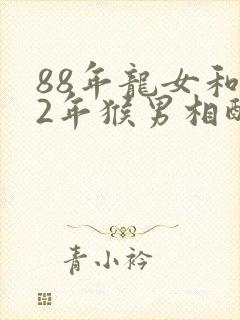 88年龍女和
2年猴男相
青小衿